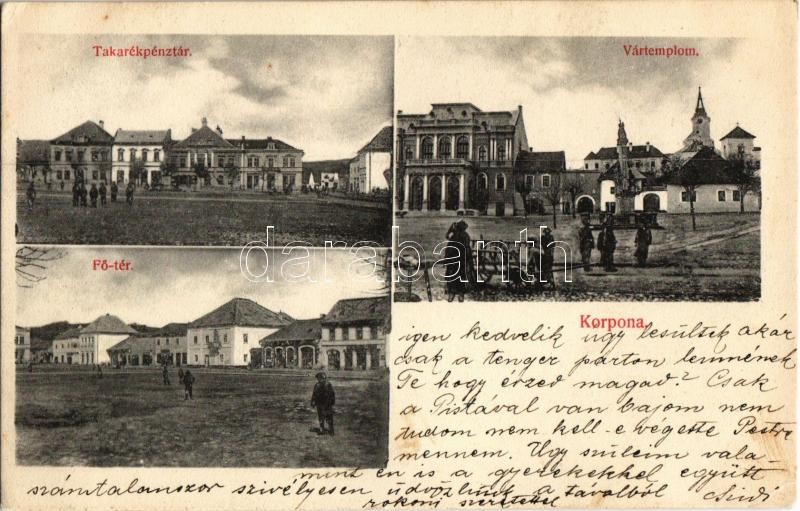 Takarékpénztár.
Vártemplom.
Fő-tér.
darabanth
Korpona.
igen kedvelik ugy lesültek akár
csak a tenger parton lennének
Te hogy érzed magad? Csak
a Pistával van bajom nem
tudom nem kell-e végette Pestre
mennem. Ugy szüleim vala
mint én is a gyerekekkel együtt
számtalanszor szivélyesen üdvözlünk a távolból
rokoni szeretettel